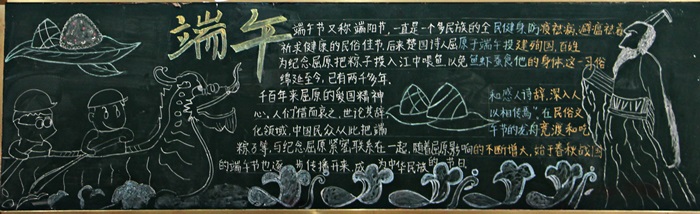 端午
端午节又称端阳节,一直是一个多民族的全民健身,防疫祛病,避瘟祛毒
祈求健康的民俗佳节,后来楚国诗人屈原于端午投江殉国,百姓
为纪念屈原把粽子投入江中喂鱼,以免鱼虾蚕食他的身体这一习俗
绵延至今,已有两千多年。
千百年来屈原的爱国精神和感人诗辞,深入人
心,人们"惜而哀之,世论其辞,以相传焉",在民俗文
化领域,中国民众从此把端午节的龙舟竞渡和吃
粽子等,与纪念屈原紧密联系在一起,随着屈原影响的不断增大,始于春秋战国
的端午节也逐步传播开来,成为中华民族的节日